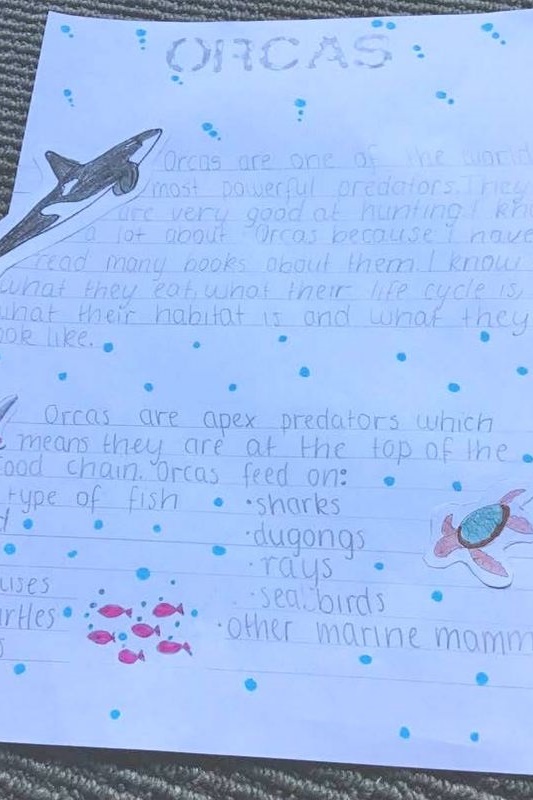 ORCAS
Orcas are one of the world
most powerful predators. They
are very good at hunting I kn
a lot about Orcas because I have
read many books about them. I know
what they eat, what their life cycle is,
what their habitat is and what they
ook like.
Orcas are apex predators which
means they are at the top of the
ood chain. Orcas feed on:
type of fish
•sharks
•dugongs
•rays
uses
•sea birds
urtles
•other marine mamm
s